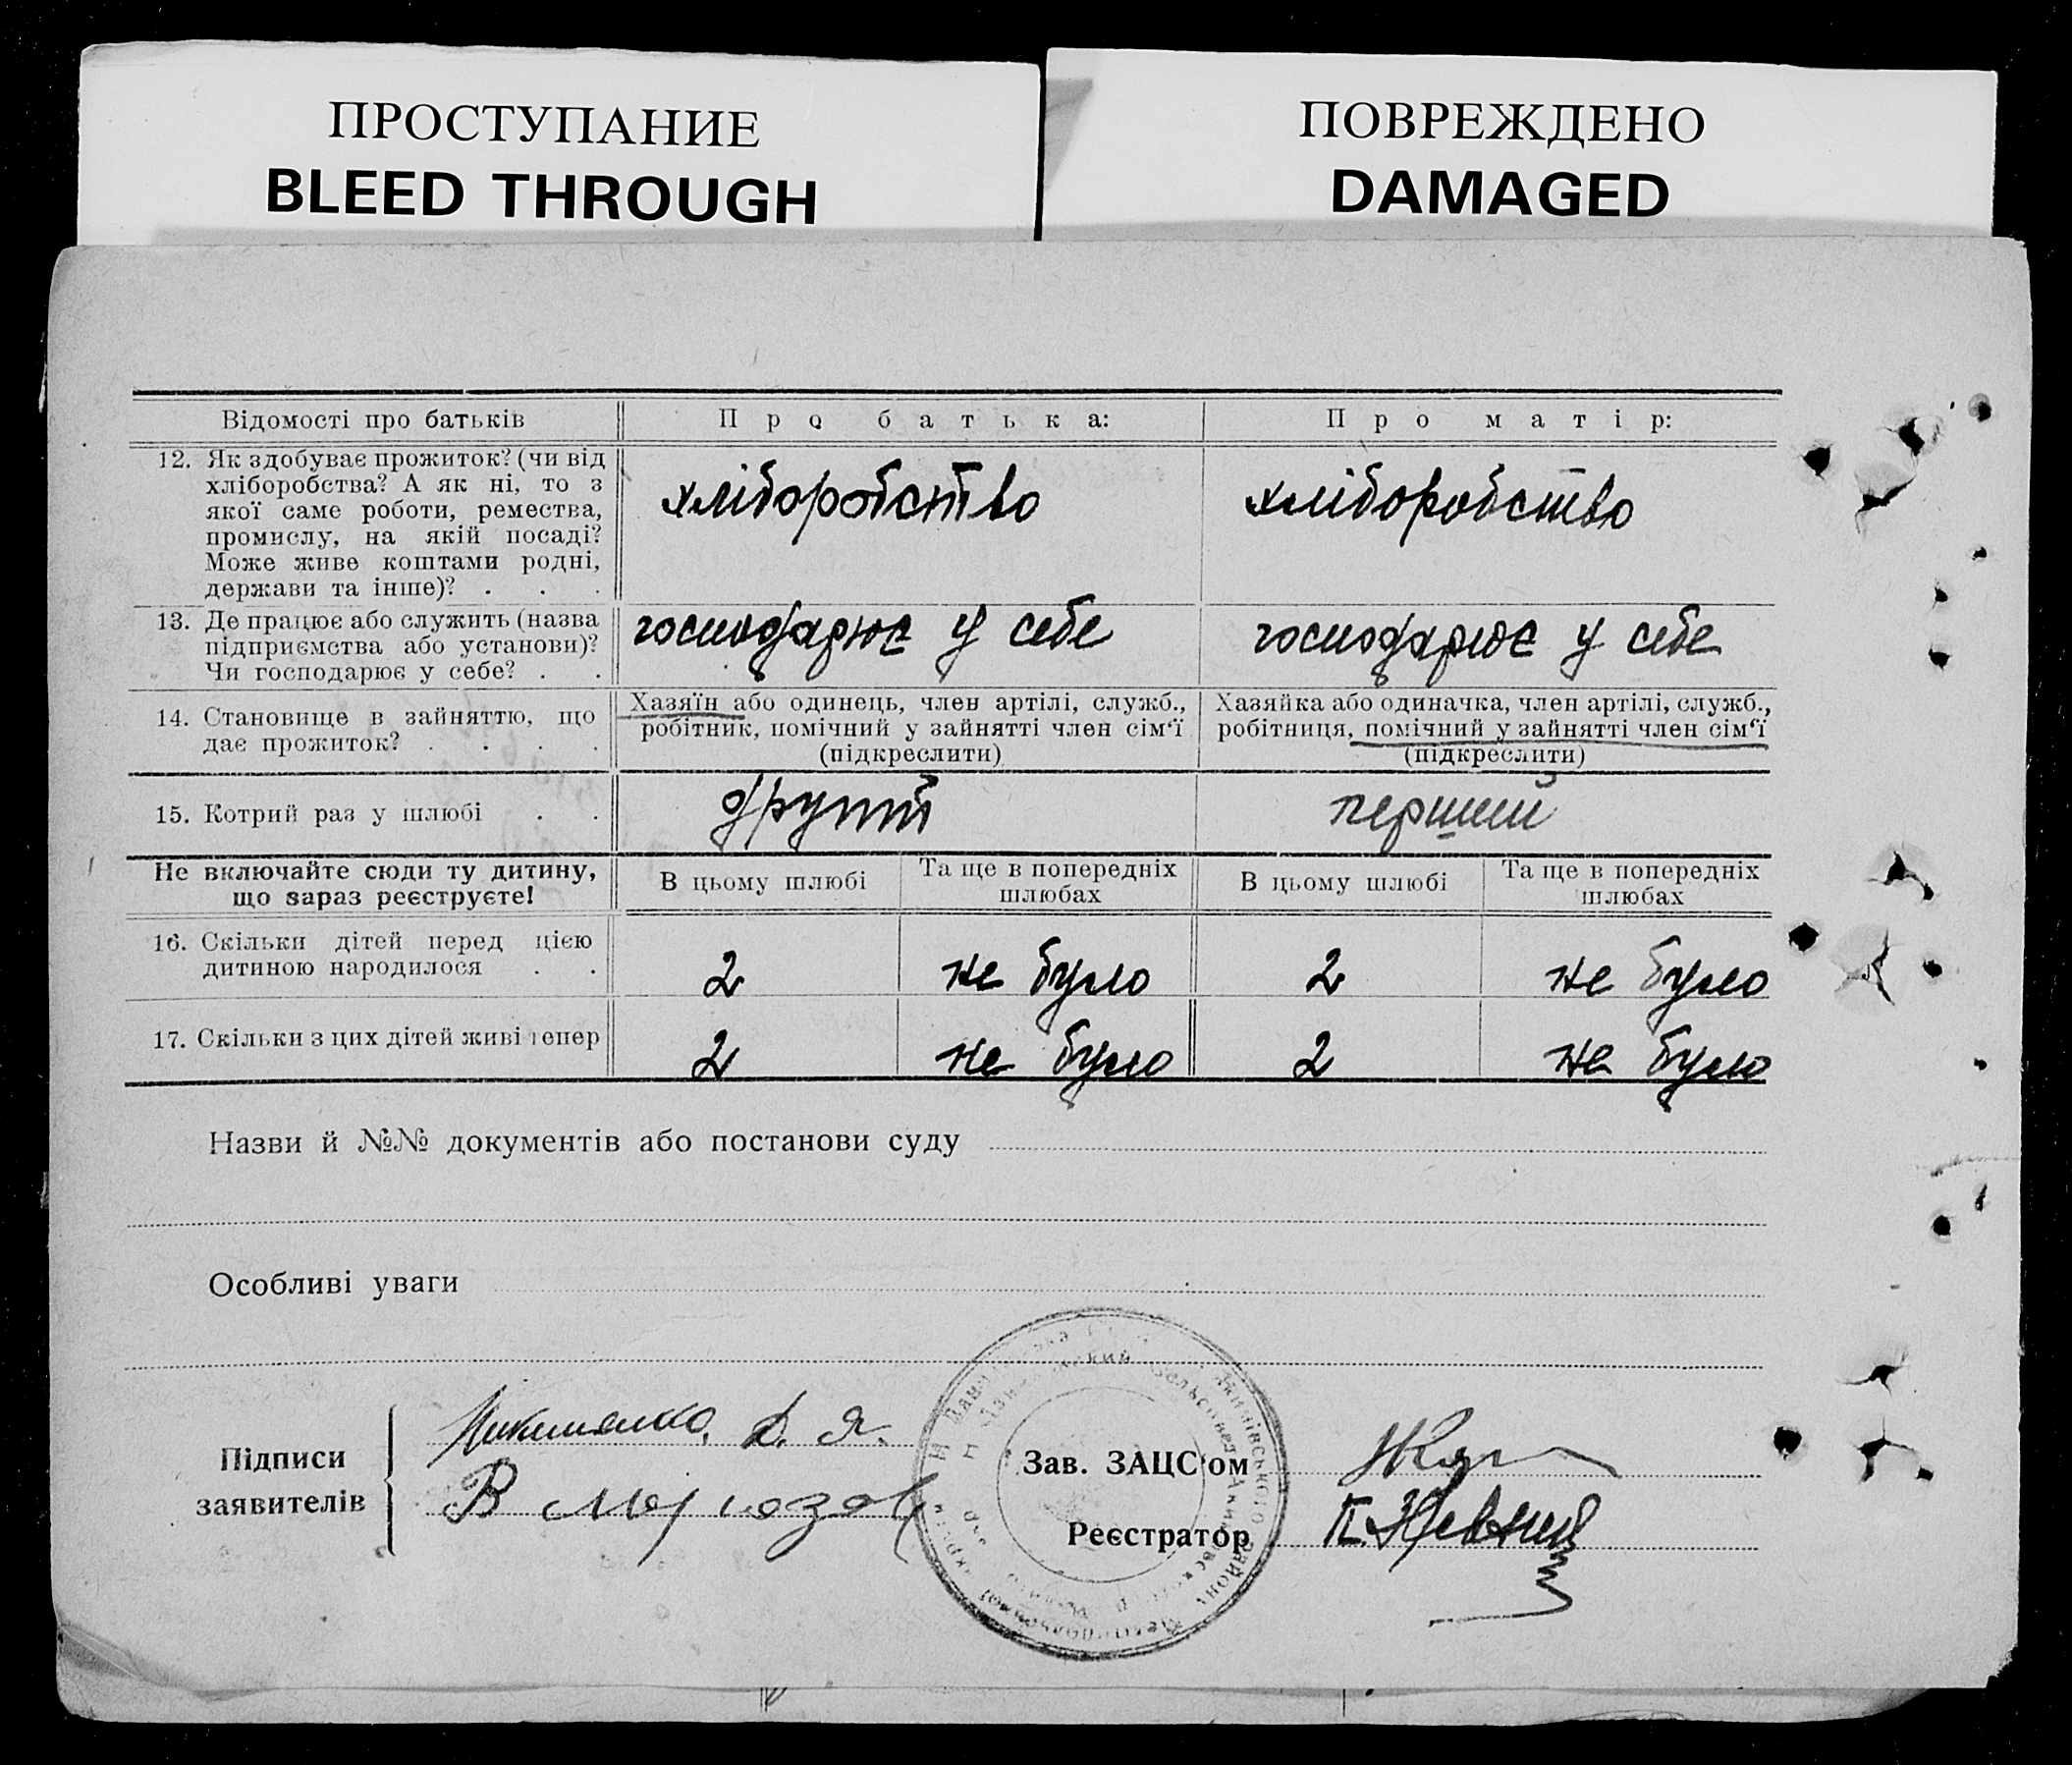 ПРОСТУПАНИЕ
BLEED THROUGH
ПОВРЕЖДЕНО
DAMAGED
Відомості про батьків
Про батька:
Про матір:
12. Як здобуває прожиток? (чи від
хліборобства? А як ні, то з
якої саме роботи, ремества,
промислу, на якій посаді?
Може живе коштами родні,
держави та інше)? . . .
хліборобство
хліборобство
13. Де працює або служить (назва
підприємства або установи)?
Чи господарює у себе? . .
господарює у себе
господарює у себе
14. Становище в зайняттю, що
дає прожиток? . . . .
Хазяїн або одинець, член артілі, служб.,
робітник, помічний у зайнятті член сім‘ї
(підкреслити)
Хазяйка або одиначка, член артілі, служб.,
робітниця, помічний у зайнятті член сім‘ї
(підкреслити)
15. Котрий раз у шлюбі . .
перший
Не включайте сюди ту дитину,
що зараз реєструєте!
В цьому шлюбі
Та ще в попередніх
шлюбах
В цьому шлюбі
Та ще в попередніх
шлюбах
16. Скільки дітей перед цією
дитиною народилося . .
2
не було
2
не було
17. Скільки з цих дітей живі тепер
2
не було
2
не було
Назви й №№ документів або постанови суду
Особливі уваги
Підписи
заявителів
Д. Я.
В
Зав. ЗАЦС‘ом
Реєстратор
П.